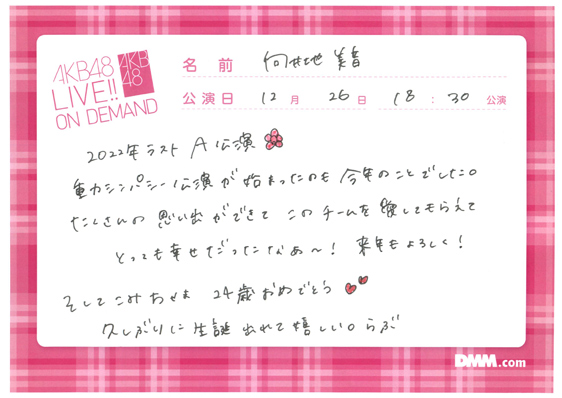 AKB48
LIVE!!
ON DEMAND
AKB
48
名前 向井地 美音
公演日 12月 26日 18:30 公演
2022年ラスト A公演
重力シンパシー公演が始まったのも今年のことでした。
たくさんの思い出ができて このチームを愛してもらえて
とっても幸せだったなあ〜! 来年もよろしく!
そしてこみちゃま 24歳おめでとう
久しぶりに生誕出れて嬉しい。らぶ
DMM.com